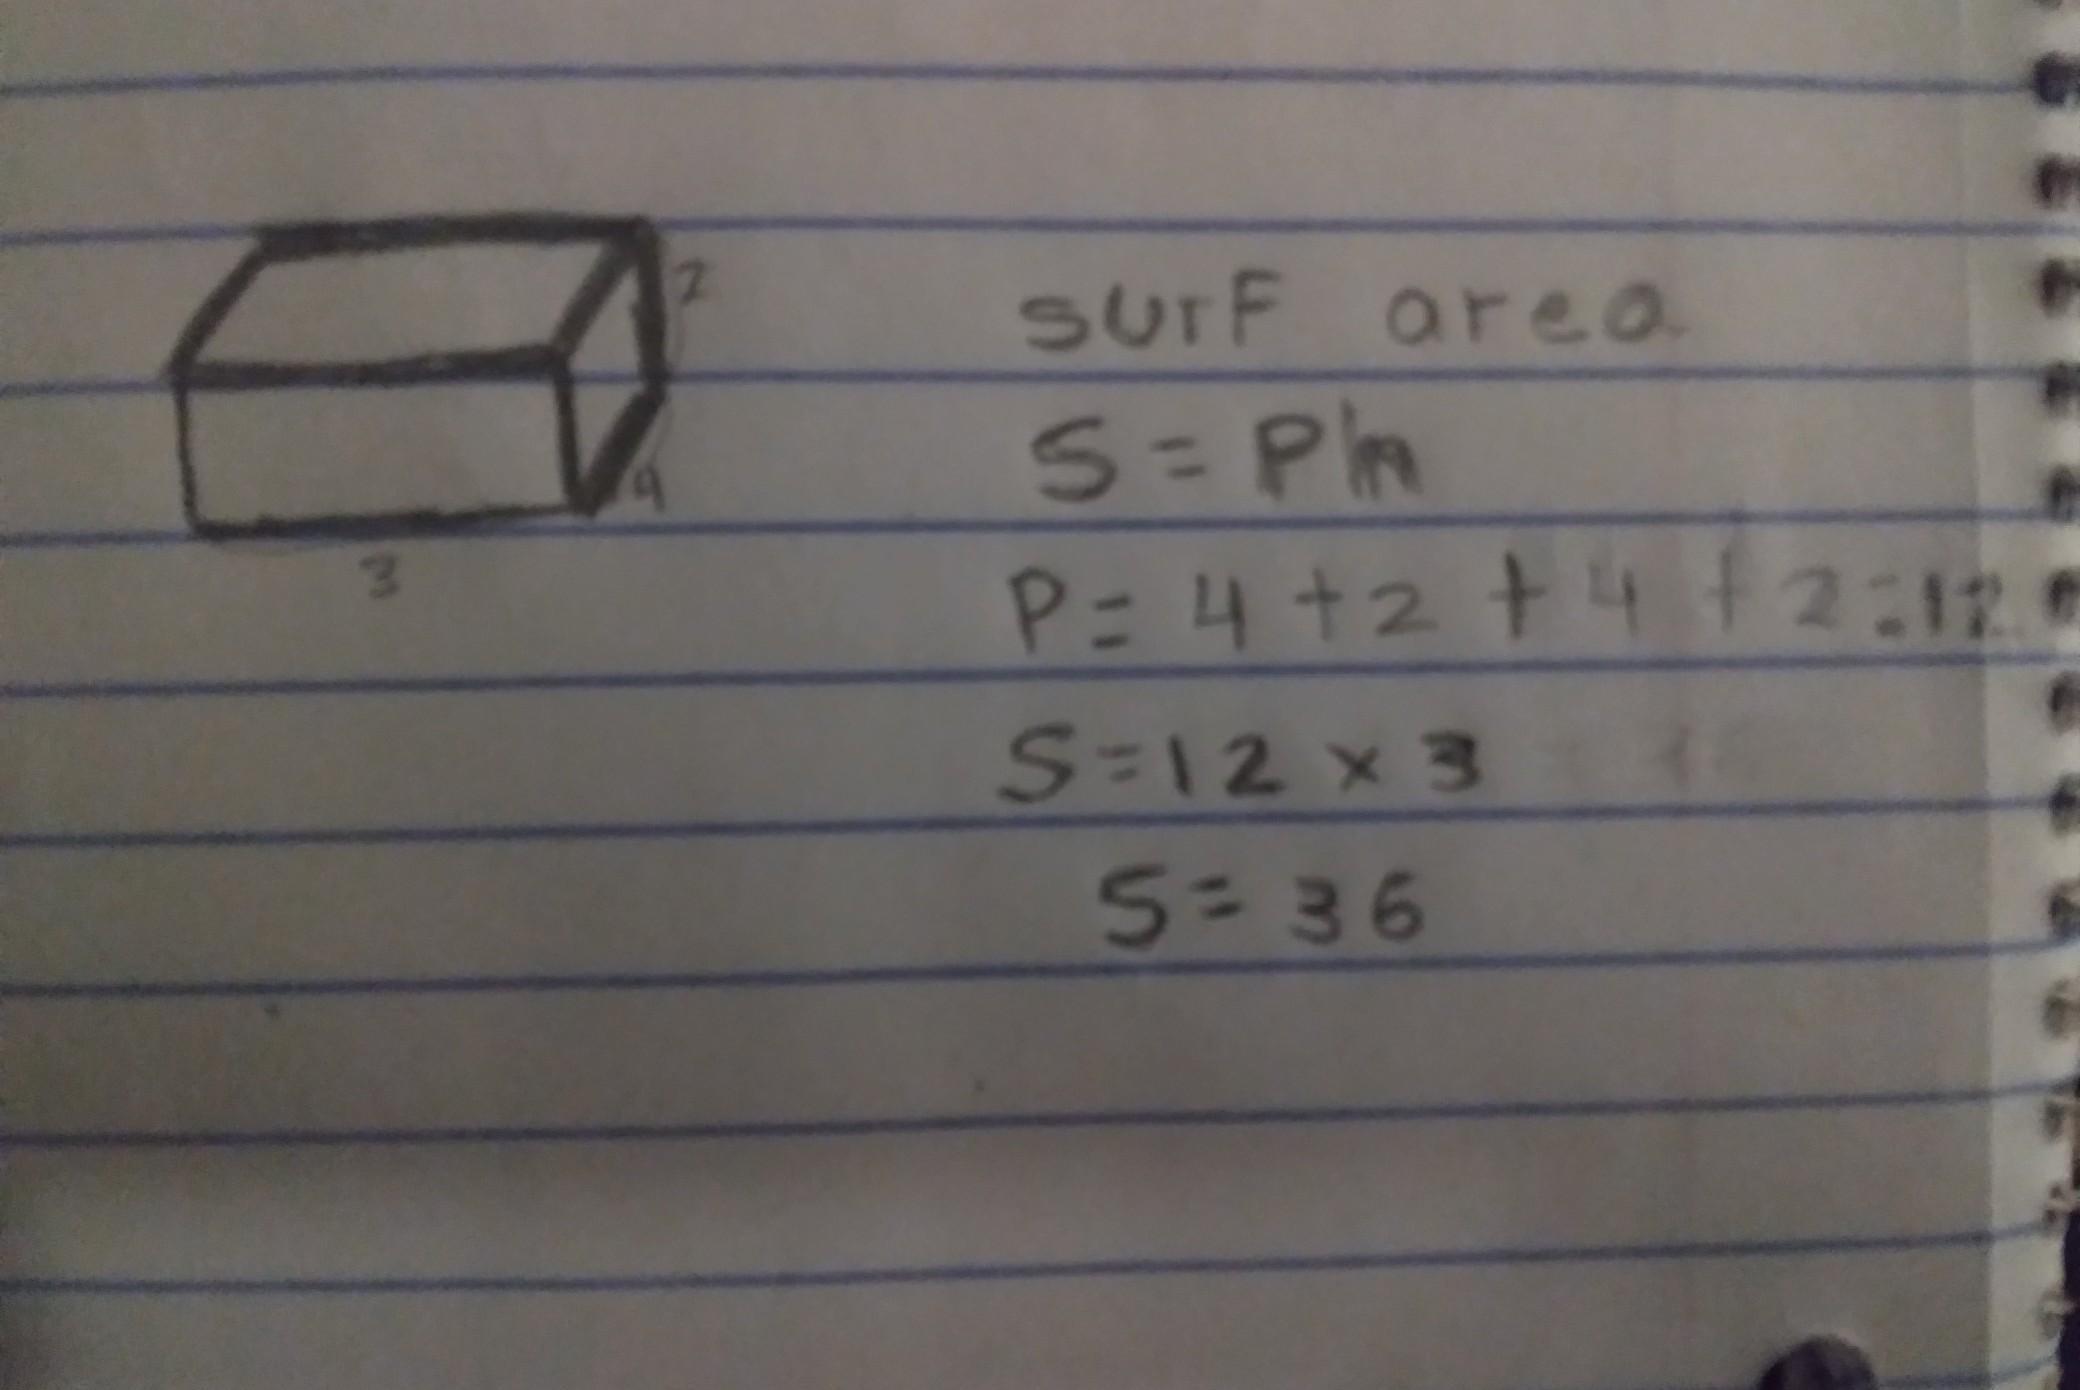 2
4
3
surf area
S = Ph
P = 4 + 2 + 4 + 2 = 12
S = 12 x 3
S = 36